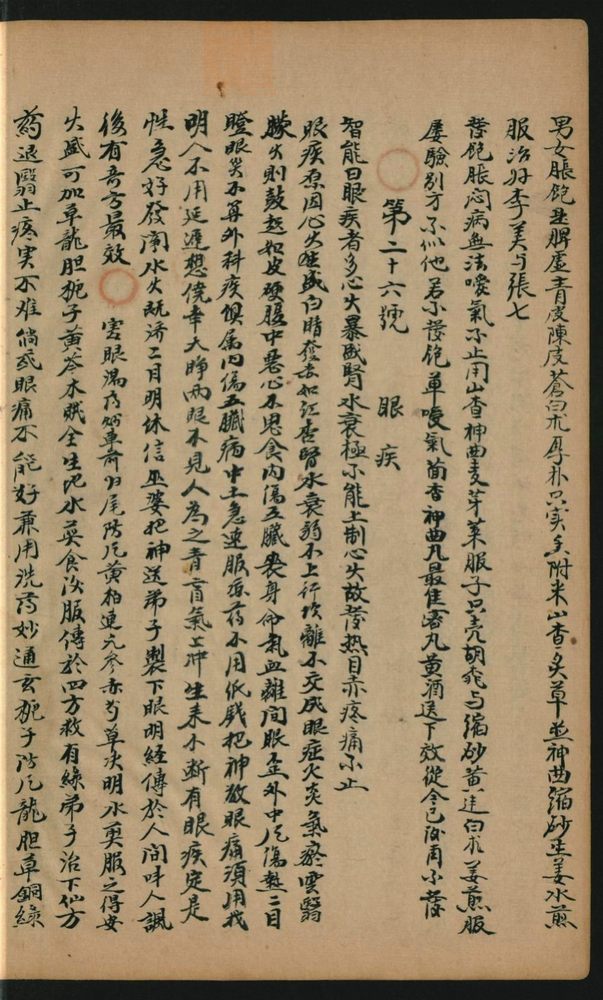 男女脹飽並脾虛青皮陳皮蒼白朮厚朴只实炙附米山查炙草並神曲縮砂生姜水煎
服治好李美与張七
發飽脹悶病無法噯氣不止用山查神曲麦芽莱服子只壳胡桃与縮砂黄連白朮姜煎服
屡驗別方不似他若不發飽單噯氣茴香神曲丸最佳蜜丸黄酒送下效從今已後再不發
第二十六號 眼疾
智能曰眼疾者多心火暴盛腎水衰極不能上制心火故發热目赤疼痛不止
眼疾原因心火旺盛白睛發赤如紅杏腎水衰弱不上行坎離不交成眼症火炎氣瘀雲翳
朦火則鼓起如皮硬腹中惡心不思食内傷五臟喪身命氣血離间眼歪外中風傷熱二目
瞪眼災不算外科疾俱属内傷五臟病中土急速服凉药不用低錢把神敬眼痛須用我
明人不用延遲想僥幸大睁兩眼不見人為之青盲氣上冲生来不断有眼疾定是
性急好發閙水火既济二目明休信巫婆把神送弟子製下眼明經傳於人间叫人諷
後有奇方最效 害眼湯药好車前归尾防風黄柏連元参赤芍草决明水煎服之得安
火盛可加草龍胆梔子黄芩木賊全生地水煎食後服傳於四方救有緣弟子治下仙方
药退翳止疼实不难倘或眼痛不能好兼用洗药妙通玄梔子防風龍胆草銅綠